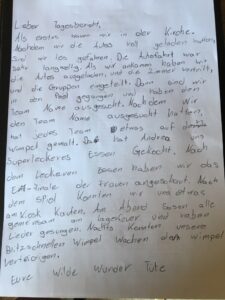 Lieber Tagesbericht,
Als erstes waren wir in der Kirche.
Nachdem wir die Autos voll geladen hatten,
sind wir los gefahren. Die Autofahrt war
sehr langweilig. Als wir ankamen haben wir
die Autos ausgeladen, und die Zimmer verteilt,
und die Gruppen eingeteilt. Dann sind wir
in den Pool gegangen und haben den
Team Name ausgesucht. Nachdem wir
den Team Name ausgesucht hatten,
hat jedes Team etwas auf den
Wimpel gemalt. Da hat Andrea ein
Superleckeres Essen Gekocht. Nach
dem Leckeren Essen haben wir das
EM-Finale der Frauen angeschaut. Nach
dem Spiel konnten wir uns etwas
am Kiosk Kaufen. Am Abend Sasen alle
gemeinsam am Lagerfeuer und haben
Lieder gesungen. Nachts konnten unsere
Blitzschnellen Wimpel Wachen den Wimpel
verteidigen.
Eure Wilde Wunder Tüte